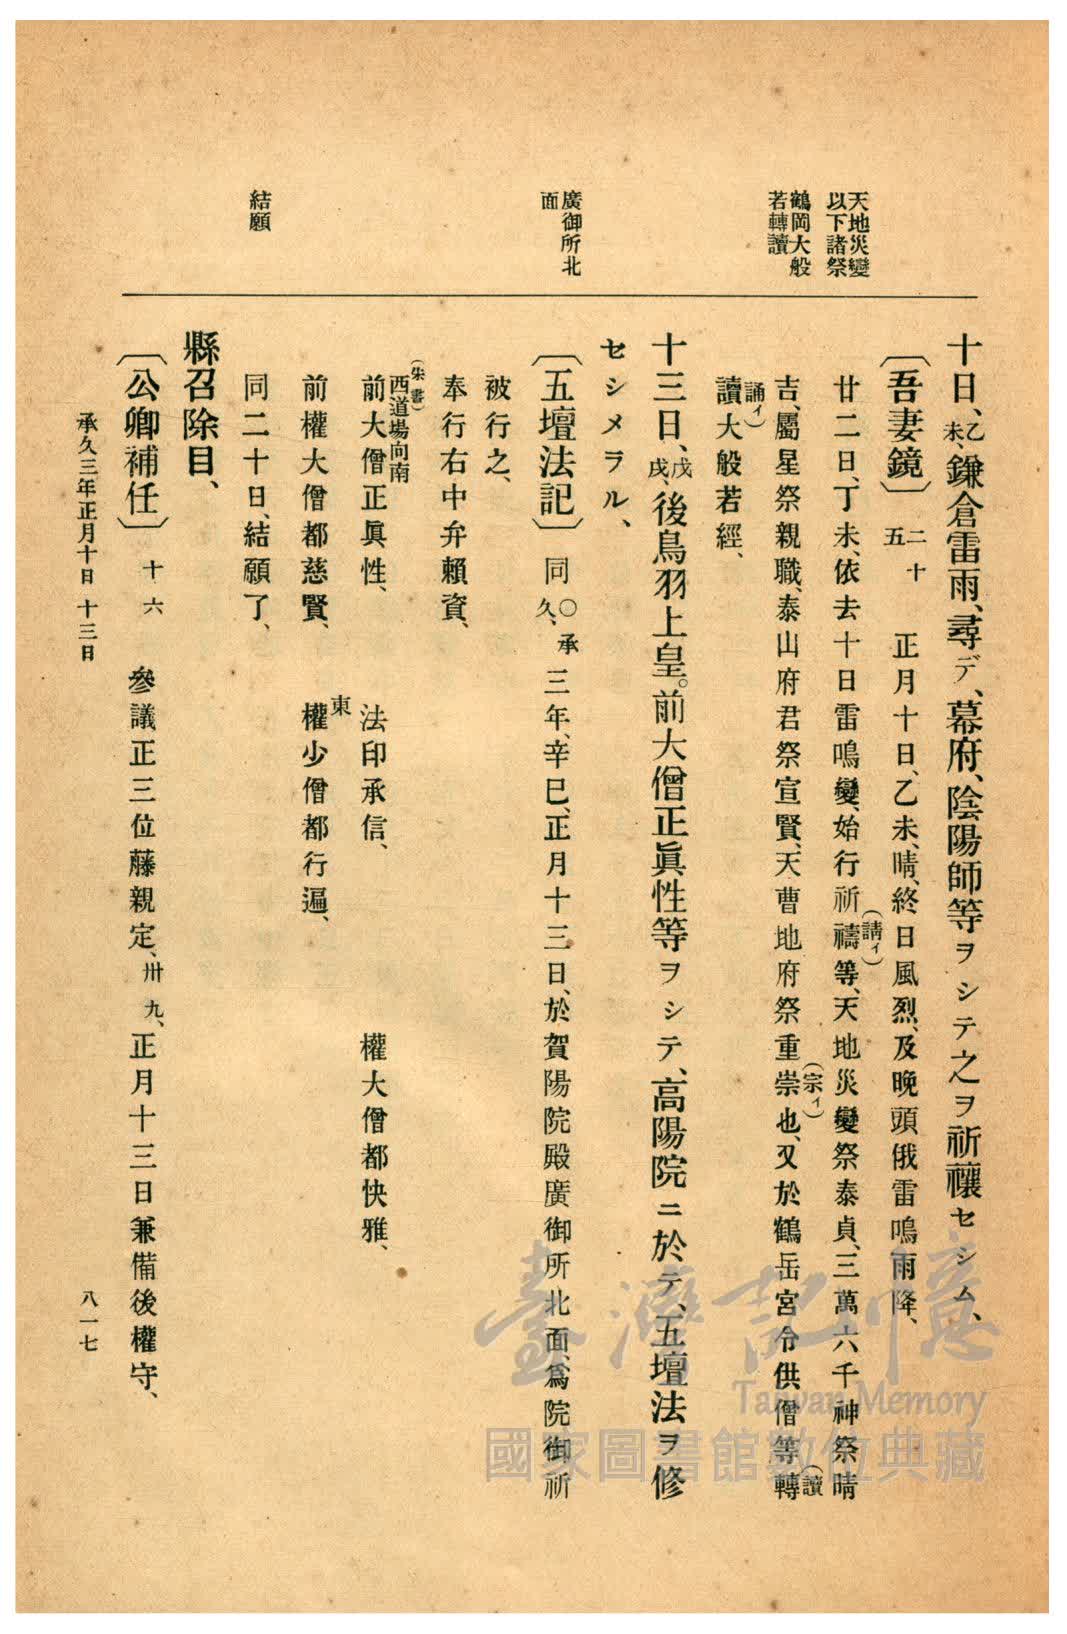 天地災變
以下諸祭
鶴岡大般
若轉讀
廣御所北
面
結願
十日、乙未、鎌倉雷雨、尋デ、幕府、陰陽師等ヲシテ之ヲ祈禳セシム、
〔吾妻鏡〕二十五 正月十日、乙未、晴、終日風烈、及晚頭俄雷鳴雨降、
廿二日、丁未、依去十日雷鳴變、始行祈禱(請イ)等、天地災變祭泰貞、三萬六千神祭晴
吉、屬星祭親職、泰山府君祭宣賢、天曹地府祭重崇(宗イ)也、又於鶴岳宮令供僧等轉(讀
讀大般若經、誦イ)
十三日、戊戌、後鳥羽上皇。前大僧正眞性等ヲシテ、高陽院ニ於テ、五壇法ヲ修
セシメラル、
〔五壇法記〕同○承久、三年、辛巳、正月十三日、於賀陽院殿廣御所北面、爲院御祈
被行之、
奉行右中弁賴資、
(朱書)
西道場向南
前大僧正眞性、 法印承信、 權大僧都快雅、
東
前權大僧都慈賢、 權少僧都行遍、
同二十日、結願了、
縣召除目、
〔公卿補任〕十六 參議正三位藤親定、卅九、正月十三日兼備後權守、
承久三年正月十日 十三日 八一七
臺灣記憶
Taiwan Memory
國家圖書館數位典藏